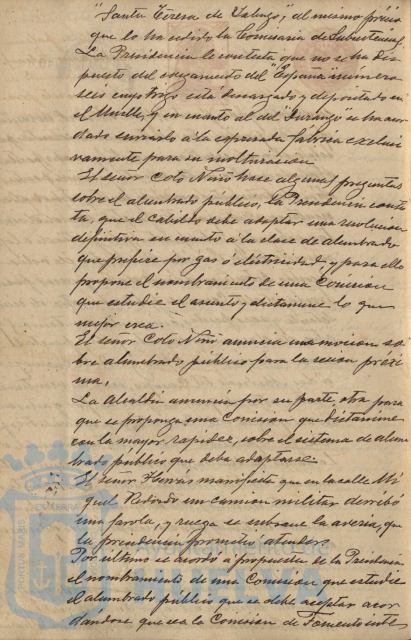 "Santa Teresa de                 ", al mismo precio
que lo ha cedido la Comisaria de Subsistencias.
La Presidencia le contesta que no se ha dis-
puesto del cargamento del "España" número
seis cuyo trigo está descargado y depositado en
el Muelle, y en cuanto al del Durango se ha acor-
dado enviarlo á la expresada fabrica exclusi-
vamente para su molturacion
El señor Coto Niño hace algunas preguntas
sobre el alumbrado público, la Presidencia contes-
ta, que el Cabildo debe adoptar una resolucion
definitiva en cuanto á la clase de alumbrado
que prefiere por gas ó electricidad y para ello
propone el nombramiento de una Comision
que estudie el asunto y dictamine lo que
mejor crea.
El señor Coto Niño anuncia una mocion so-
bre alumbrado público para la sesion próxi-
ma.
La Alcaldia anuncia por su parte, otra para
que se proponga una Comision que dictamine
con la mayor rapidez, sobre el sistema de alum-
brado público que deba adoptarse.
El señor             manifiesta que en la calle Mi-
guel Redondo un camion militar derribó
una farola, y ruega se subsane la averia, que
la presidencia promete atender.
Por último se acordo á propuesta de la Presidencia
el nombramiento de una Comision que estudie
el alumbrado público que se debe aceptar acor-
dándose que sea la Comision de Fomento
PORTUS MARIS
ET TERRAE
Ayuntamiento de
HUELVA